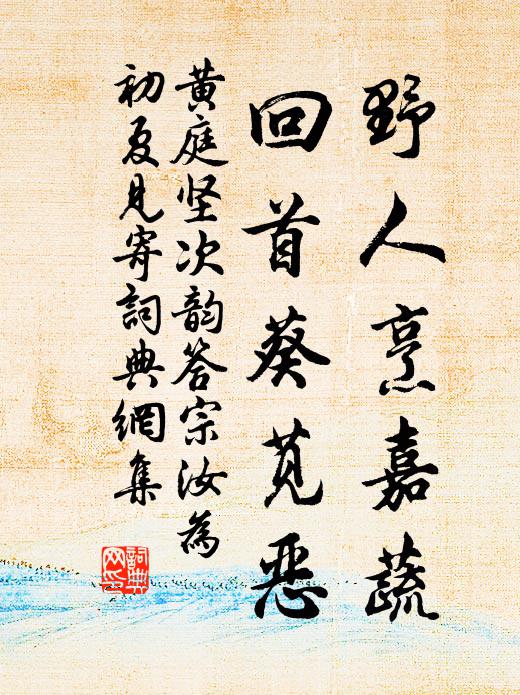 野人烹嘉蔬
回首葵苋恶
黄庭坚次韵答宗汝為
初夏見寄詞典網集
詞典
网印